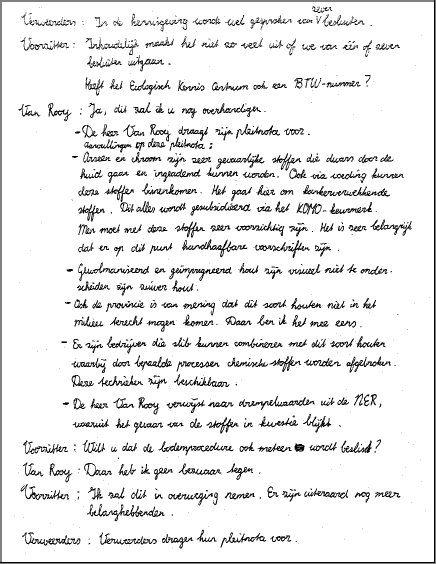 Verweerders : In de kennisgeving wordt wel gesproken van zeven besluiten.
Voorzitter : Inhoudelijk maakt het niet zo veel uit of we van één of zeven
besluiten uitgaan.
Heeft het Ecologisch Kennis Centrum ook een BTW-nummer?
Van Rooy : Ja, dit zal ik u nog overhandigen.
- De heer Van Rooy draagt zijn pleitnota voor.
aanvullingen op deze pleitnota :
- Arseen en chroom zijn zeer gevaarlijke stoffen die dwars door de
huid gaan en ingeademd kunnen worden. Ook via voeding kunnen
deze stoffen binnenkomen. Het gaat hier om kankerverwekkende
stoffen. Dit alles wordt gesubsidieerd via het KOMO-keurmerk.
Men moet met deze stoffen zeer voorzichtig zijn. Het is zeer belangrijk
dat er op dit punt handhaafbare voorschriften zijn.
- Gewolmaniseerd en geïmpregneerd hout zijn visueel niet te onder-
scheiden zijn zuiver hout.
- Ook de provincie is van mening dat dit soort houten niet in het
milieu terecht mogen komen. Daar ben ik het mee eens.
- Er zijn bedrijven die slib kunnen combineren met dit soort houten
waarbij door bepaalde processen chemische stoffen worden afgebroken.
Deze technieken zijn beschikbaar.
- De heer Van Rooy verwijst naar drempelwaarden uit de NER,
waaruit het gevaar van de stoffen in kwestie blijkt.
Voorzitter : Wilt u dat de bodemprocedure ook meteen wordt beslist?
Van Rooy : Daar heb ik geen bezwaar tegen.
Voorzitter : Ik zal dit in overweging nemen. Er zijn uiteraard nog meer
belanghebbenden.
Verweerders : Verweerders dragen hun pleitnota voor.